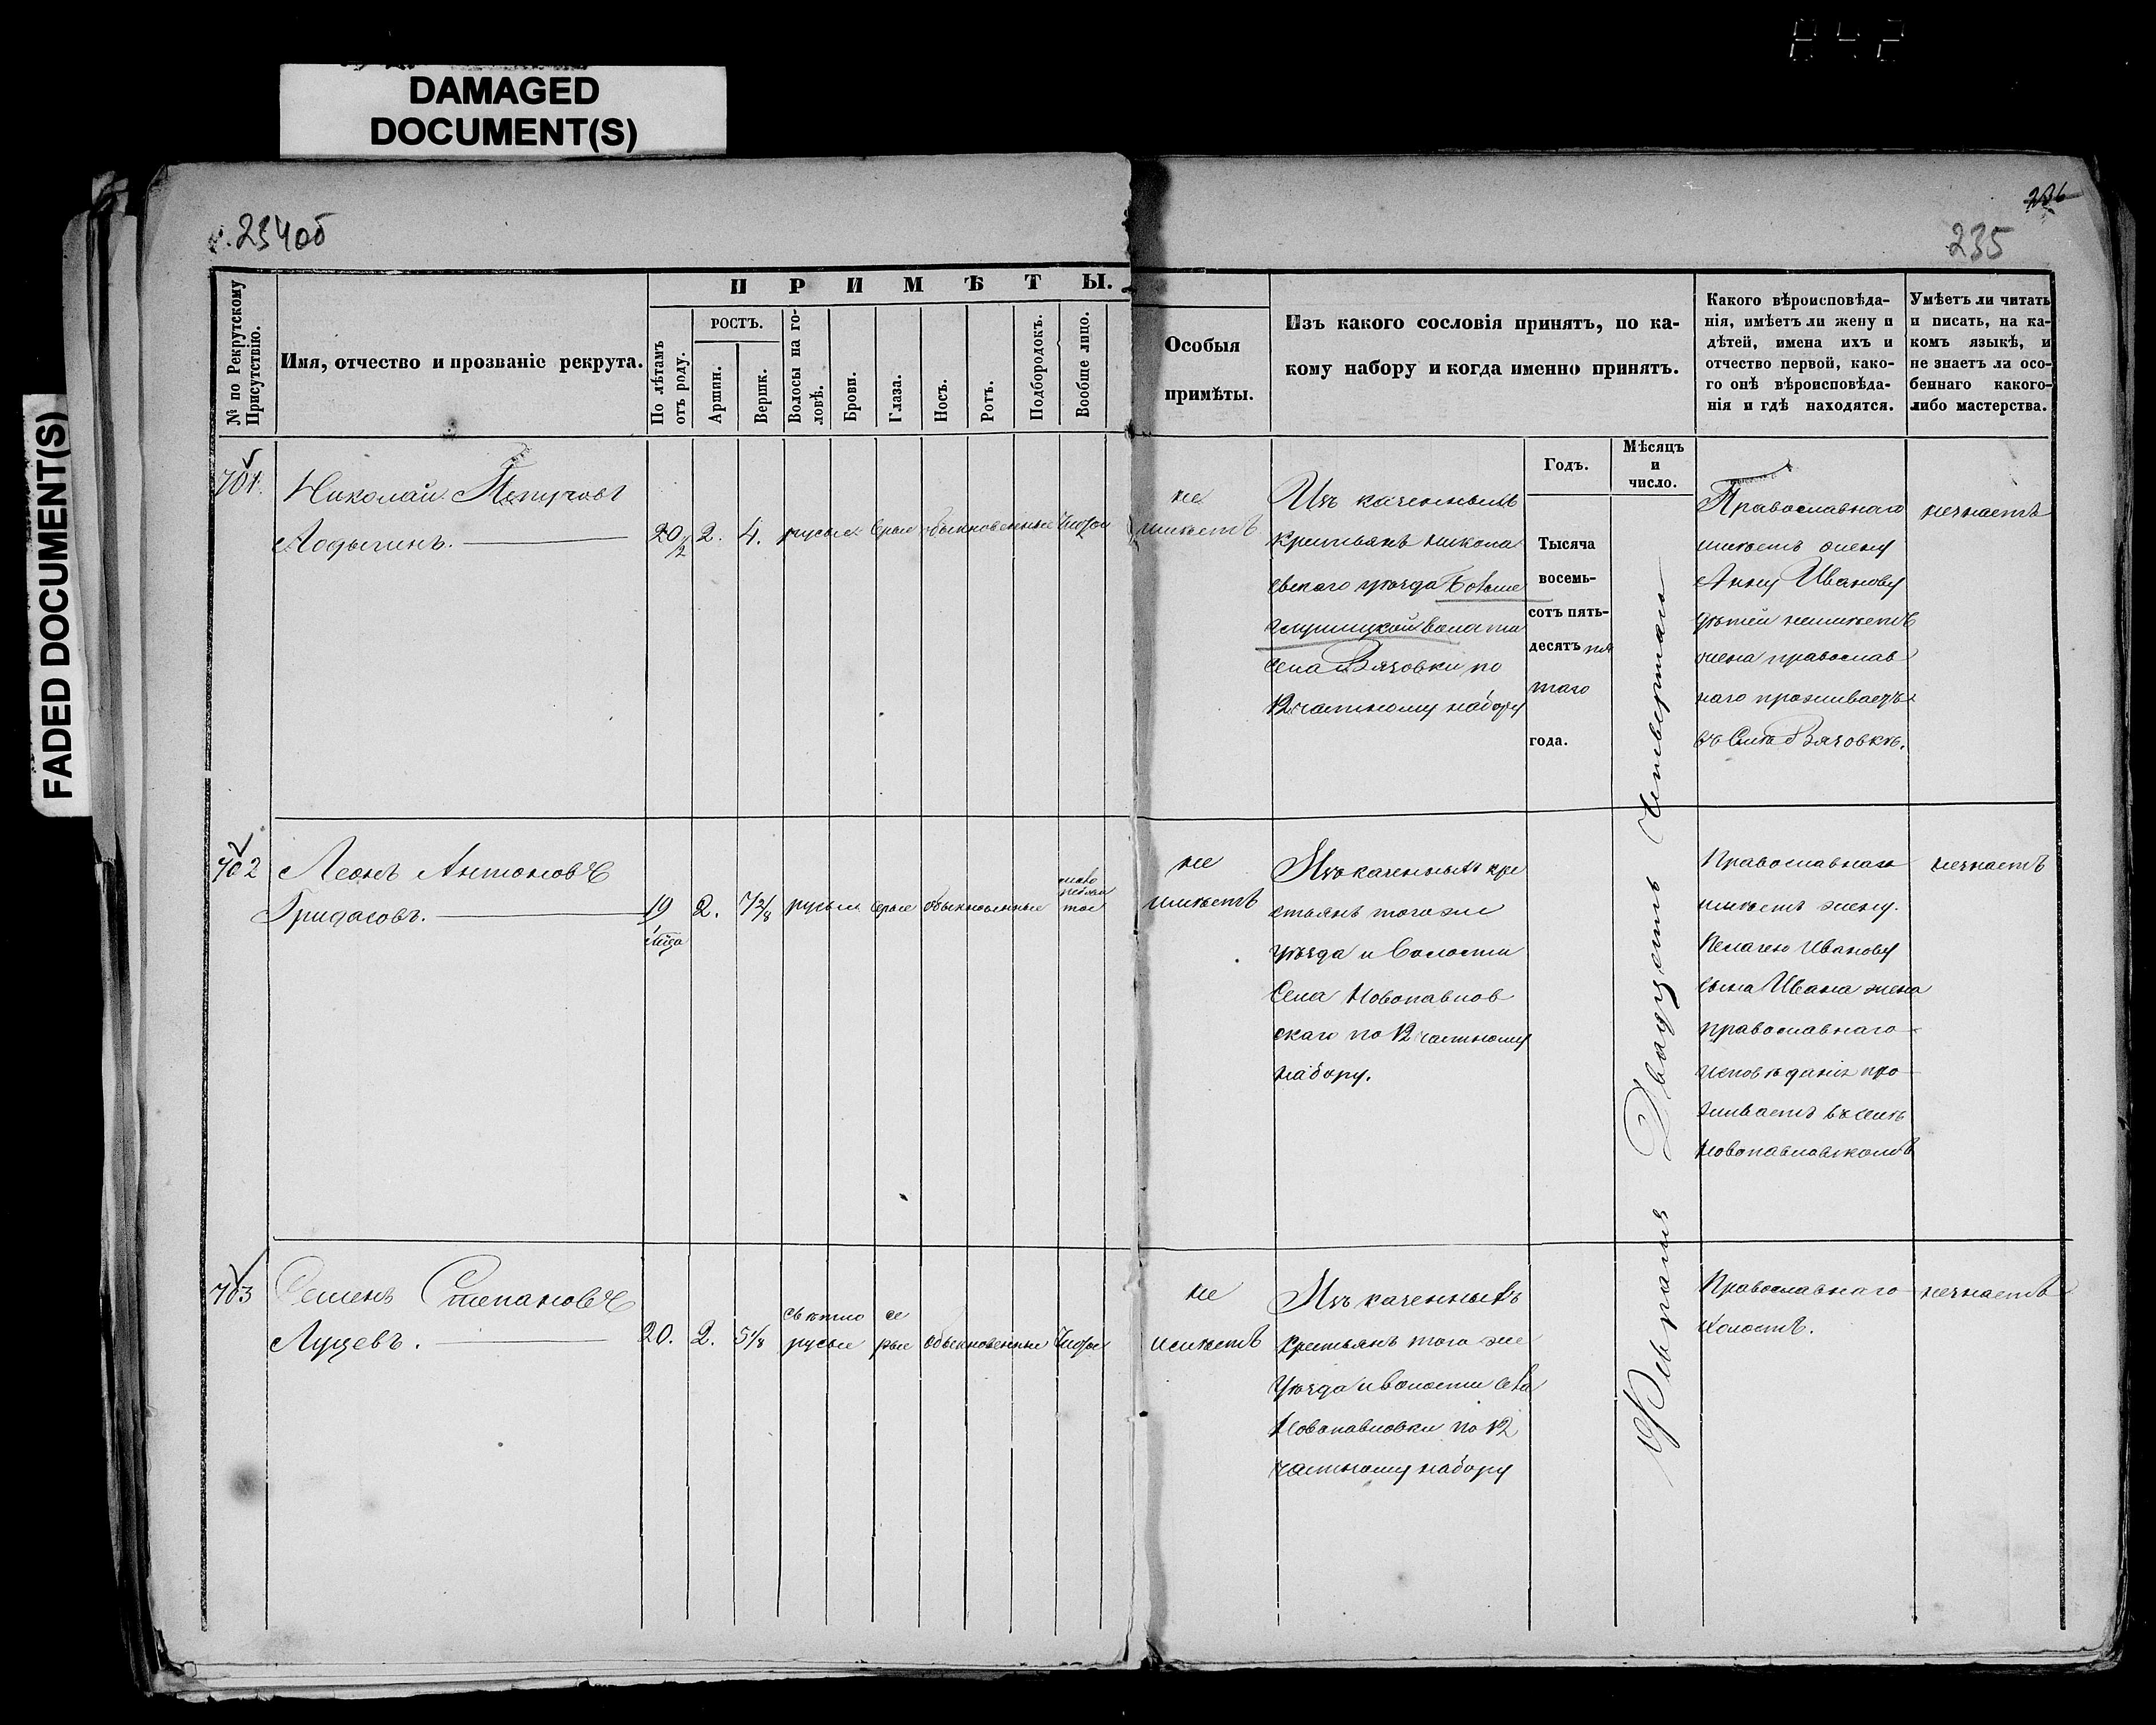 842
DAMAGED
DOCUMENT(S)
FADED DOCUMENT(S)
234об
236
235
№ по Рекрутскому Присутствію.
Имя, отчество и прозваніе рекрута.
ПРИМѢТЫ.
По лѣтамъ отъ роду.
РОСТЪ.
Аршин.
Вершк.
Волосы на головѣ.
Брови.
Глаза.
Носъ.
Ротъ.
Подбородокъ.
Вообще лицо.
Особыя
примѣты.
Изъ какого сословія принятъ, по ка-
кому набору и когда именно принятъ.
Годъ.
Мѣсяцъ
и
число.
Какого вѣроисповѣда-
нія, имѣетъ ли жену и
дѣтей, имена ихъ и
отчество первой, како-
го онѣ вѣроисповѣда-
нія и гдѣ находятся.
Умѣетъ ли читать
и писать, на ка-
комъ языкѣ, и
не знаетъ ли осо-
беннаго какого-
либо мастерства.
701.
Николай
Лодыгинъ.
20 1/2
2.
4.
русые
серые
обыкновенные
Чистое
не
имѣетъ
Изъ казенныхъ
крестьянъ Никола
евскаго уѣзда Больше
глушицкой волости
села Вязовки по
12 частному набору
Тысяча
восемь-
сотъ пять-
десятъ пя
таго
года.
Февраля Двадцать Четвертаго
Православнаго
имѣетъ жену
Анну Иванову
дѣтей неимѣетъ
жена православ
наго проживаетъ
въ Селѣ Вязовкѣ.
незнаетъ
702
Леонъ Антоновъ
Гридасовъ.
19
2.
7 2/8
русые
серые
обыкновенные
не
имѣетъ
Изъ казенныхъ кре
стьянъ тогоже
уѣзда и Волости
Села Новопавлов
скаго по 12 частному
набору.
Православнаго
имѣетъ жену.
Пелагею Иванову
сына Ивана жена
православнаго
исповѣданія про
живаетъ въ селѣ
Новопавловскомъ
незнаетъ
703
Семенъ Степановъ
Луцевъ.
20.
2.
5 1/8
светло
русые
се
рые
обыкновенные
Чистое
не
имѣетъ
Изъ казенныхъ
крестьянъ того же
Уѣзда и Волости села
Новопавловки по 12
частному набору
Православнаго
Холостъ.
незнаетъ